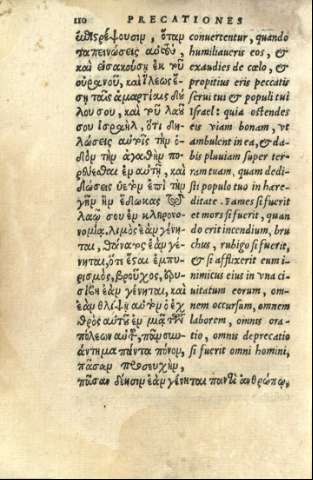 110 PRECATIONES
ἐπιστρέψουσιν, ὅταν
ταπεινώσεις αὐτοὺς,
καὶ εἰσακούσῃ ἐκ τοῦ
οὐρανοῦ, καὶ ἵλεως ἔ-
σῃ ταῖς ἁμαρτίαις δού
λου σου, καὶ τοῦ λαοῦ
σου ἰσραὴλ, ὅτι δη-
λώσεις αὐτοῖς τὴν ὁ-
δὸν τὴν ἀγαθὴν πο-
ρεύεσθαι ἐν αὐτῇ, καὶ
δώσεις ὑετὸν ἐπὶ τὴν
γῆν ἣν ἔδωκας τῷ
λαῷ σου ἐν κληρονο-
νομίᾳ. λιμὸς ἐὰν γένη-
ται, θάνατος ἐὰν γέ-
νηται, ὅτι ἔσται ἐμπυ-
ρισμὸς, βροῦχος, ἐρυ-
σίβη ἐὰν γένηται, καὶ
ἐὰν θλίψῃ αὐτὸν ὁ ἐχ
θρὸς αὐτοῦ ἐν μιᾷ τῶν
πόλεων αὐτοῦ, πᾶν συν-
άντημα πάντα πόνον,
πᾶσαν προσευχὴν,
πᾶσαν δέησιν ἐὰν γένηται παντὶ ἀνθρώπῳ,
conuertentur, quando
humiliaueris eos, &
exaudies de cœlo, &
propitius eris peccatis
serui tui & populi tui
Israel: quia ostendes
eis viam bonam, vt
ambulent in ea, & da-
bis pluuiam super ter-
ram tuam, quam dedi-
sti populo tuo in hære-
ditate. Fames si fuerit
et mors si fuerit, quan
do erit incendium, bru
chus, rubigo si fuerit,
& si afflixerit eum i-
nimicus eius in vna ci-
uitatum eorum, om-
nem occursum, omnem
laborem, omnis ora-
tio, omnis deprecatio
si fuerit omni homini,